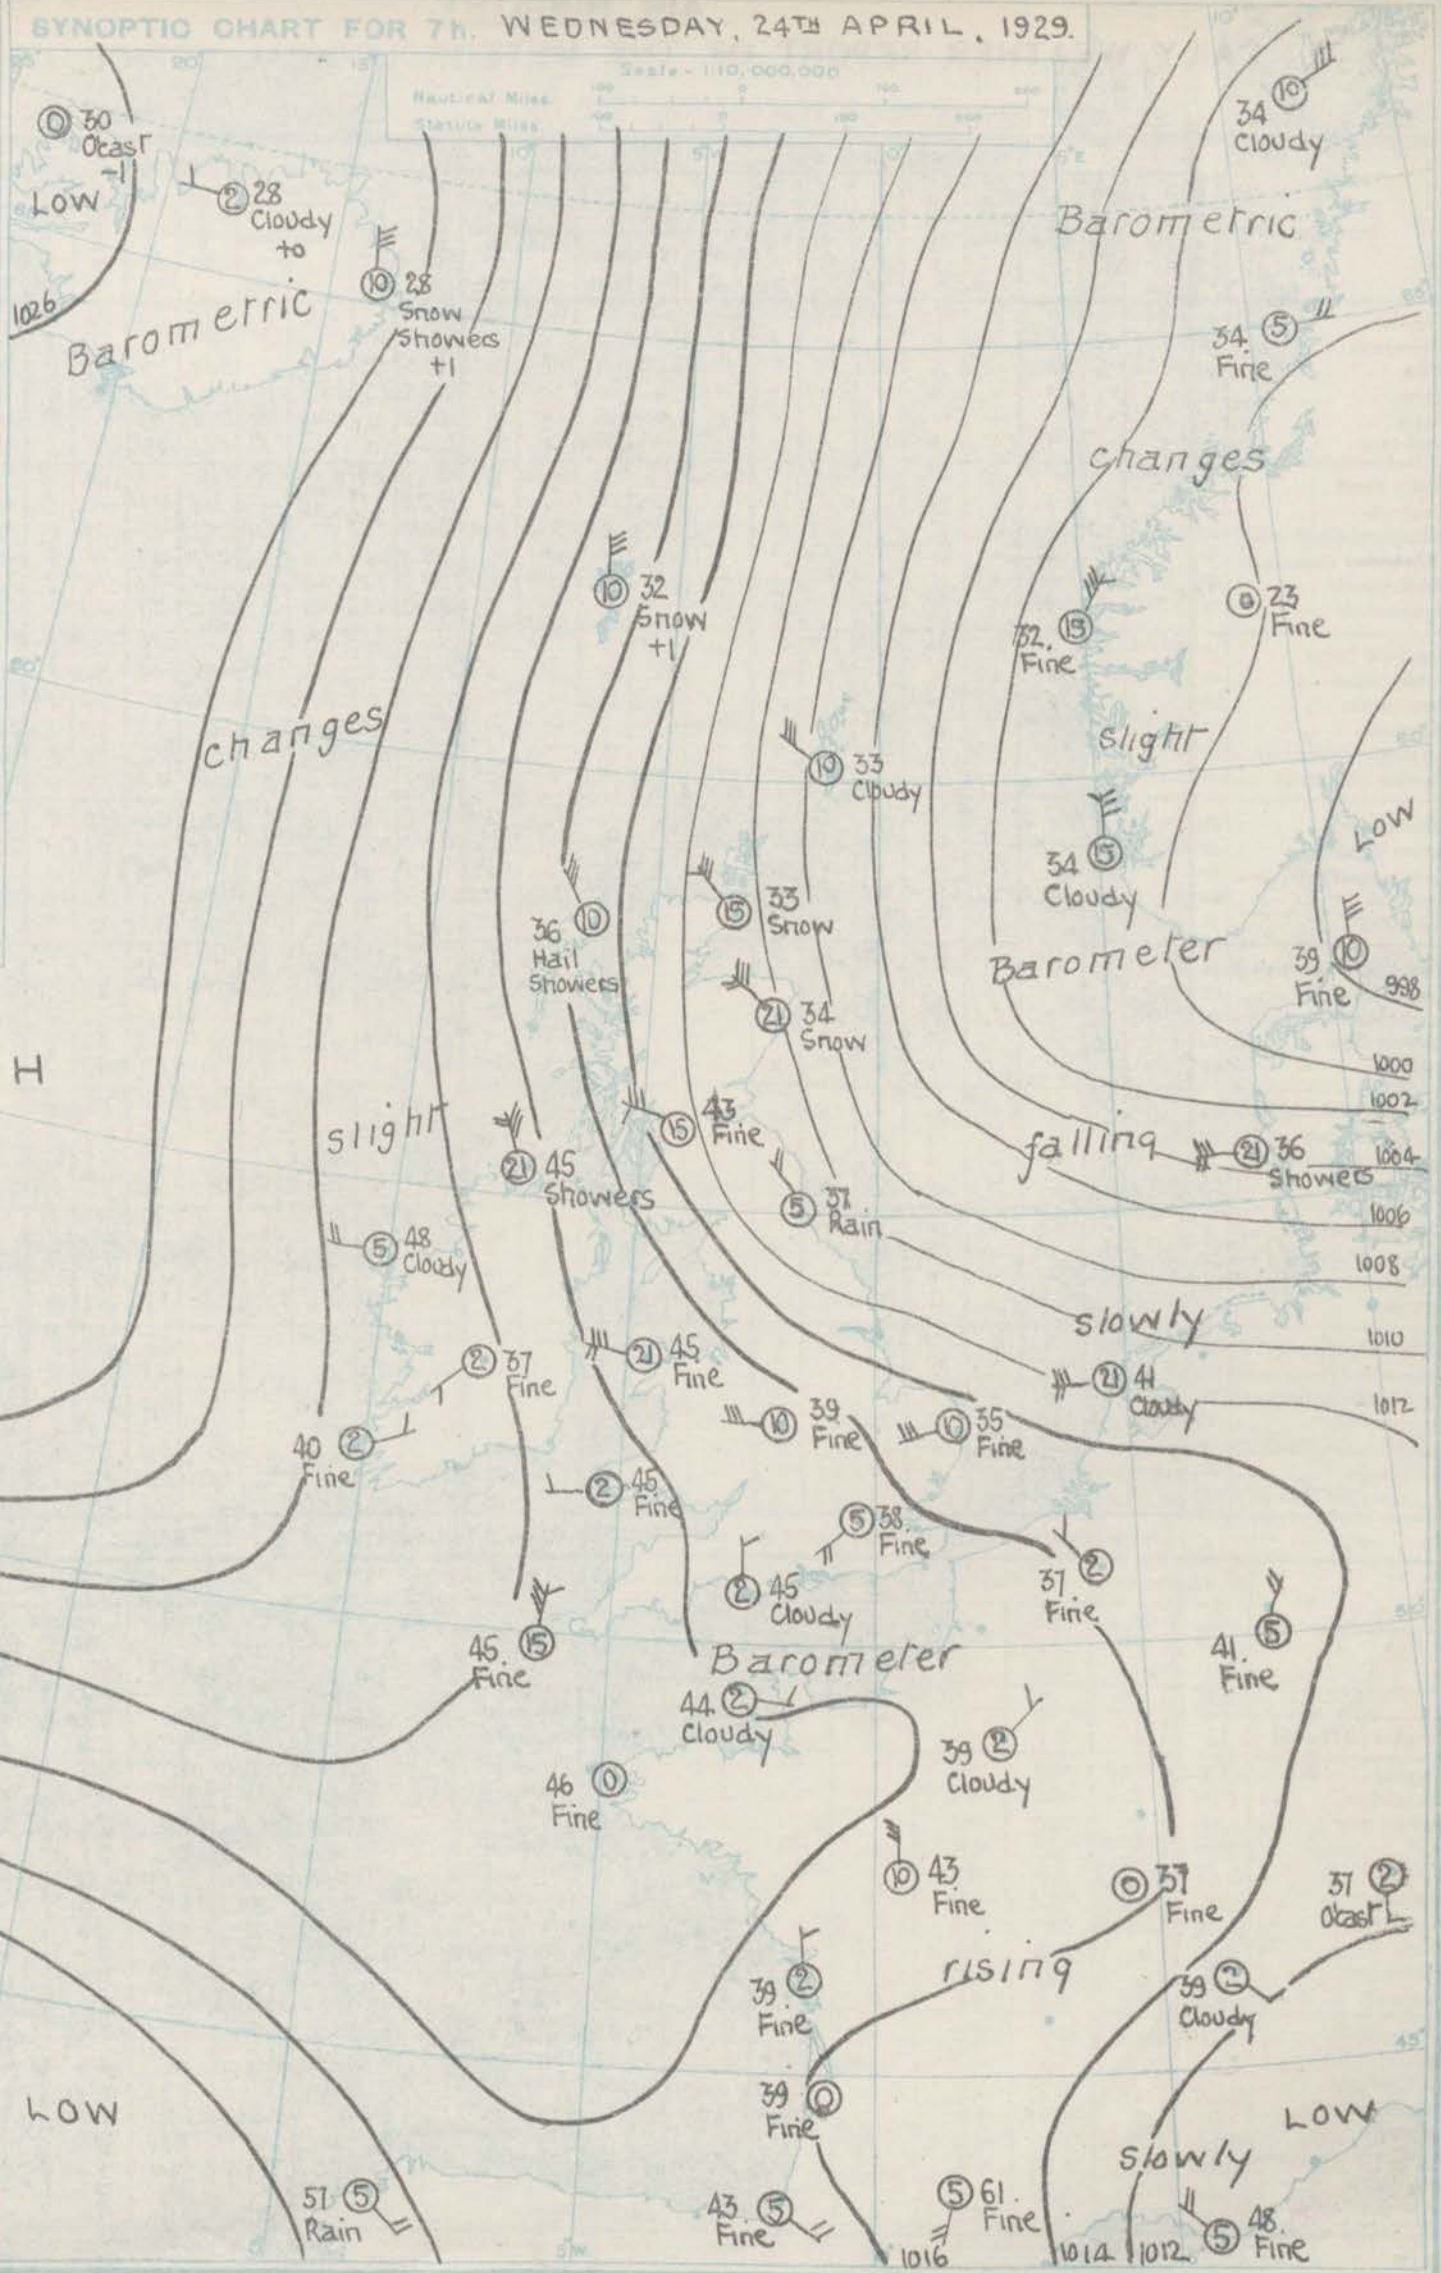 SYNOPTIC CHART FOR 7h. WEDNESDAY, 24TH APRIL, 1929.
Scale - 1:10,000,000
Nautical Miles
Statute Miles
0 30
Ocast
-1
LOW
2 28
Cloudy
to
10 28
Snow
Showers
+1
1026
Barometric
10
34
Cloudy
Barometric
5
34
Fine
changes
10 32
Snow
+1
15
32
Fine
0 23
Fine
changes
10 33
Cloudy
slight
15
34
Cloudy
LOW
10
36
Hail
Showers
15 33
Snow
Barometer
10
39
Fine
998
21 34
Snow
H
1000
1002
slight
15 43
Fine
falling
21 36
Showers
1004
21 45
Showers
5 37
Rain
1006
5 48
Cloudy
1008
slowly
1010
2 37
Fine
21 45
Fine
21 41
Cloudy
1012
40 2
Fine
10 39
Fine
10 35
Fine
2 45
Fine
5 38
Fine
2
37
Fine
2 45
Cloudy
45 15
Fine
5
41
Fine
Barometer
44 2
Cloudy
39 2
Cloudy
46 0
Fine
10 43
Fine
0 37
Fine
37 2
Ocast
rising
39 2
Fine
39 2
Cloudy
45°
39 0
Fine
LOW
LOW
slowly
57 5
Rain
43 5
Fine
5 61
Fine
5 48
Fine
1016
1014
1012